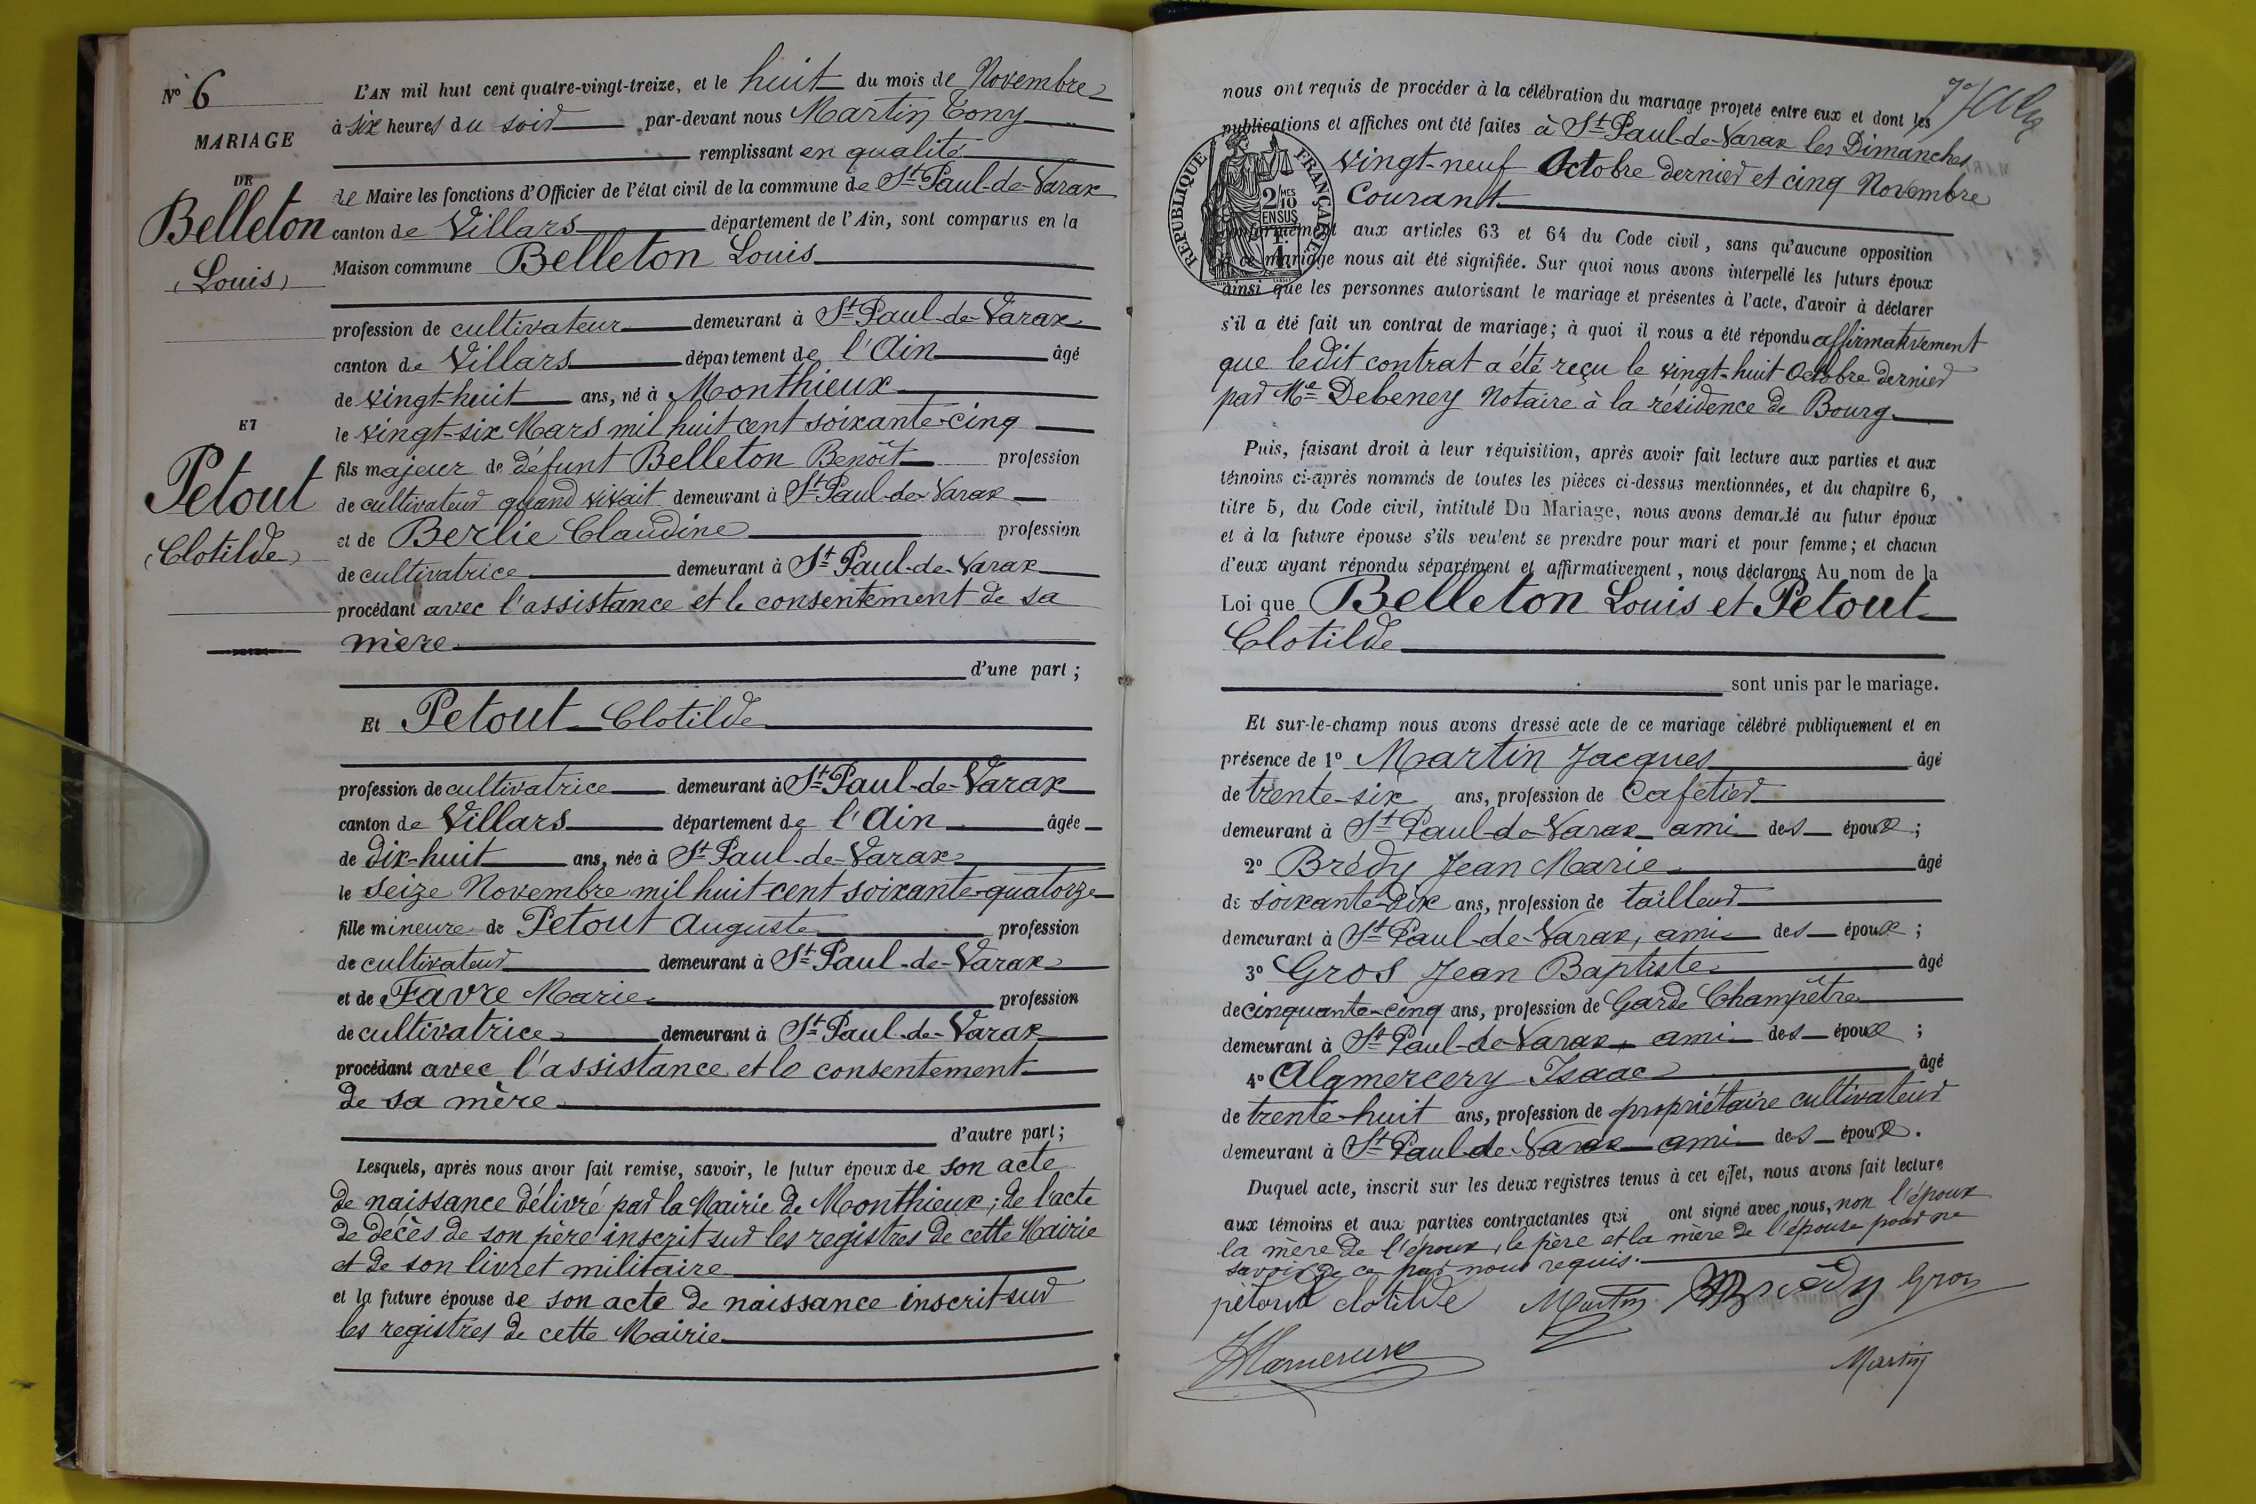 N° 6
MARIAGE
DE
Belleton
(Louis)
ET
Petout
(Clotilde)
L'AN mil huit cent quatre-vingt-treize, et le huit du mois de Novembre
à six heures du soir par-devant nous Martin Tony
remplissant en qualité
de Maire les fonctions d'Officier de l'état civil de la commune de St Paul-de-Varax
canton de Villars département de l'Ain, sont comparus en la
Maison commune Belleton Louis
profession de cultivateur demeurant à St Paul-de-Varax
canton de Villars département de l'Ain âgé
de vingt-huit ans, né à Monthieux
le vingt-six Mars mil huit cent soixante-cinq
fils majeur de défunt Belleton Benoît profession
de cultivateur quand vivait demeurant à St Paul-de-Varax
et de Berlie Claudine profession
de cultivatrice demeurant à St Paul-de-Varax
procédant avec l'assistance et le consentement de sa
mère
d'une part ;
Et Petout Clotilde
profession de cultivatrice demeurant à St Paul-de-Varax
canton de Villars département de l'Ain âgée
de dix-huit ans, née à St Paul-de-Varax
le seize Novembre mil huit cent soixante-quatorze
fille mineure de Petout Auguste profession
de cultivateur demeurant à St Paul-de-Varax
et de Favre Marie profession
de cultivatrice demeurant à St Paul-de-Varax
procédant avec l'assistance et le consentement
de sa mère
d'autre part ;
Lesquels, après nous avoir fait remise, savoir, le futur époux de son acte
de naissance délivré par la Mairie de Monthieux ; de l'acte
de décès de son père inscrit sur les registres de cette Mairie
et de son livret militaire
et la future épouse de son acte de naissance inscrit sur
les registres de cette Mairie
nous ont requis de procéder à la célébration du mariage projeté entre eux et dont les
publications et affiches ont été faites à St Paul-de-Varax les Dimanches
vingt-neuf Octobre dernier et cinq Novembre
Courant
RÉPUBLIQUE FRANÇAISE
2/10 MES
EN SUS
1F.
conformément aux articles 63 et 64 du Code civil, sans qu'aucune opposition
à ce mariage nous ait été signifiée. Sur quoi nous avons interpellé les futurs époux
ainsi que les personnes autorisant le mariage et présentes à l'acte, d'avoir à déclarer
s'il a été fait un contrat de mariage ; à quoi il nous a été répondu affirmativement
que ledit contrat a été reçu le vingt-huit Octobre dernier
par Me Debeney Notaire à la résidence de Bourg
Puis, faisant droit à leur réquisition, après avoir fait lecture aux parties et aux
témoins ci-après nommés de toutes les pièces ci-dessus mentionnées, et du chapitre 6,
titre 5, du Code civil, intitulé Du Mariage, nous avons demandé au futur époux
et à la future épouse s'ils veulent se prendre pour mari et pour femme ; et chacun
d'eux ayant répondu séparément et affirmativement, nous déclarons Au nom de la
Loi que Belleton Louis et Petout
Clotilde
sont unis par le mariage.
Et sur-le-champ nous avons dressé acte de ce mariage célébré publiquement et en
présence de 1° Martin Jacques âgé
de trente-six ans, profession de Cafetier
demeurant à St Paul-de-Varax ami des époux ;
2° Brédy Jean Marie âgé
de soixante-dix ans, profession de tailleur
demeurant à St Paul-de-Varax, ami des époux ;
3° Gros Jean Baptiste âgé
de cinquante-cinq ans, profession de Garde Champêtre
demeurant à St Paul-de-Varax, ami des époux ;
4° Alamercery Isaac âgé
de trente-huit ans, profession de propriétaire cultivateur
demeurant à St Paul-de-Varax ami des époux.
Duquel acte, inscrit sur les deux registres tenus à cet effet, nous avons fait lecture
aux témoins et aux parties contractantes qui ont signé avec nous, non l'époux
la mère de l'époux, le père et la mère de l'épouse pour ne
savoir de ce par nous requis.
petout clotilde Martin Brédy Gros
Martin